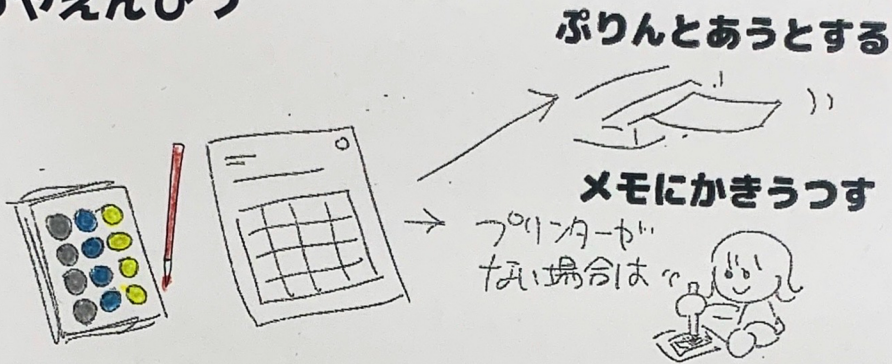 やえんぴつ
ぷりんとあうとする
メモにかきうつす
プリンターが
ない場合は